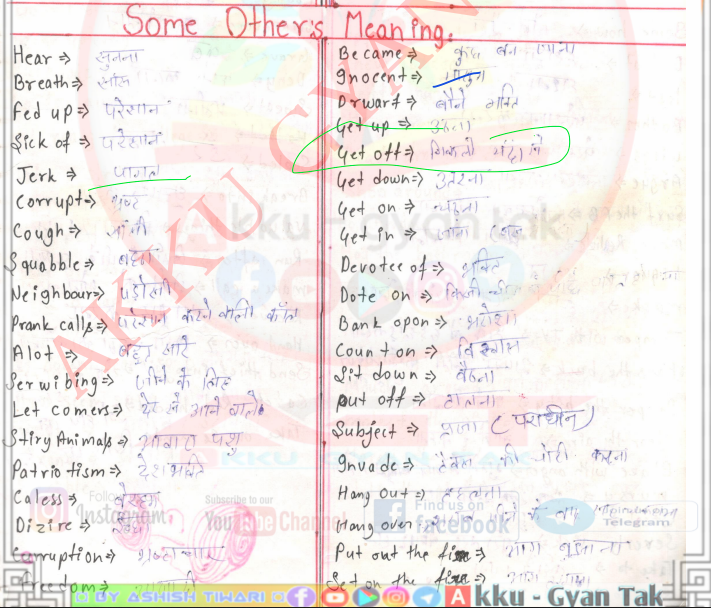 Some Other's Meaning.
Hear ⇒ सुनना
Breath ⇒ साँस
Fed up ⇒ परेसान
Sick of ⇒ परेसान
Jerk ⇒ पागल
Corrupt ⇒ भ्रष्ट
Cough ⇒ खाँसी
Squabble ⇒
Neighbour ⇒ पड़ोसी
Prank calls ⇒ परेसान करने वाली कॉल
Alot ⇒ बहुत सारे
Serwibing ⇒ जीने के लिए
Let comers ⇒ देर से आने वाले
Stiry Animals ⇒ आवारा पशु
Patriotism ⇒ देशभक्ति
Caless ⇒
Dizire ⇒
Corruption ⇒ भ्रष्टाचार
freedom ⇒ आजादी
Became ⇒ कुछ बन जाना
Ignocent ⇒
Drwarf ⇒ बौने
Get up ⇒ उठना
Get off ⇒
Get down ⇒ उतरना
Get on ⇒ चढ़ना
Get in ⇒
Devotee of ⇒ भक्ति
Dote on ⇒
Bank opon ⇒ भरोसा
Count on ⇒ विश्वास
Sit down ⇒ बैठना
Put off ⇒ टालना
Subject ⇒ (पराधीन)
Invade ⇒ चोरी करना
Hang out ⇒ टहलना
Hang over
Put out the fire ⇒ आग बुझाना
Set on the fire ⇒ आग
AKKU GYAN
Akku - gyan tak
AKKU GYAN TAK
Follow
Instagram
Subscribe to our
YouTube Channel
Find us on
facebook
Telegram
BY ASHISH TIWARI
Akku - Gyan Tak